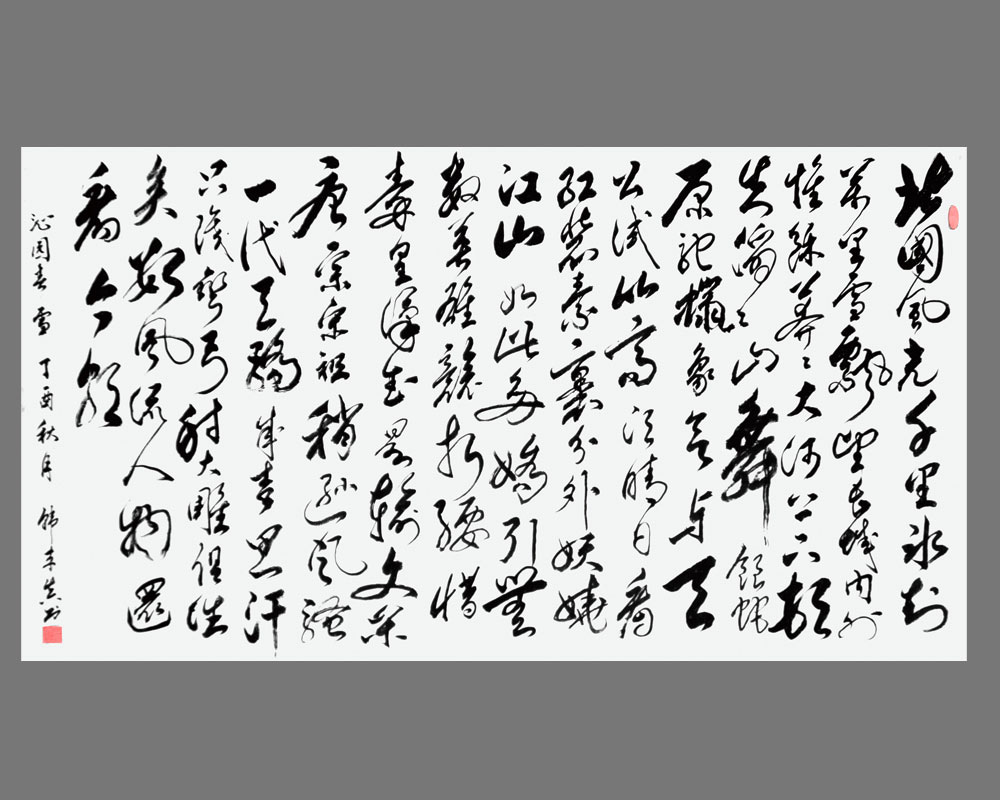 北國風光千里冰封
萬里雪飄望長城内外
惟餘莽々大河上下頓
失滔々山舞銀蛇
原馳蠟象欲与天
公試比高須晴日看
紅裝素裹分外妖嬈
江山如此多嬌引無
數英雄競折腰惜
秦皇漢武略輸文采
唐宗宋祖稍遜風騷
一代天驕成吉思汗
只識彎弓射大雕俱往
矣數風流人物還
看今朝
沁园春 雪 丁酉秋月 韩